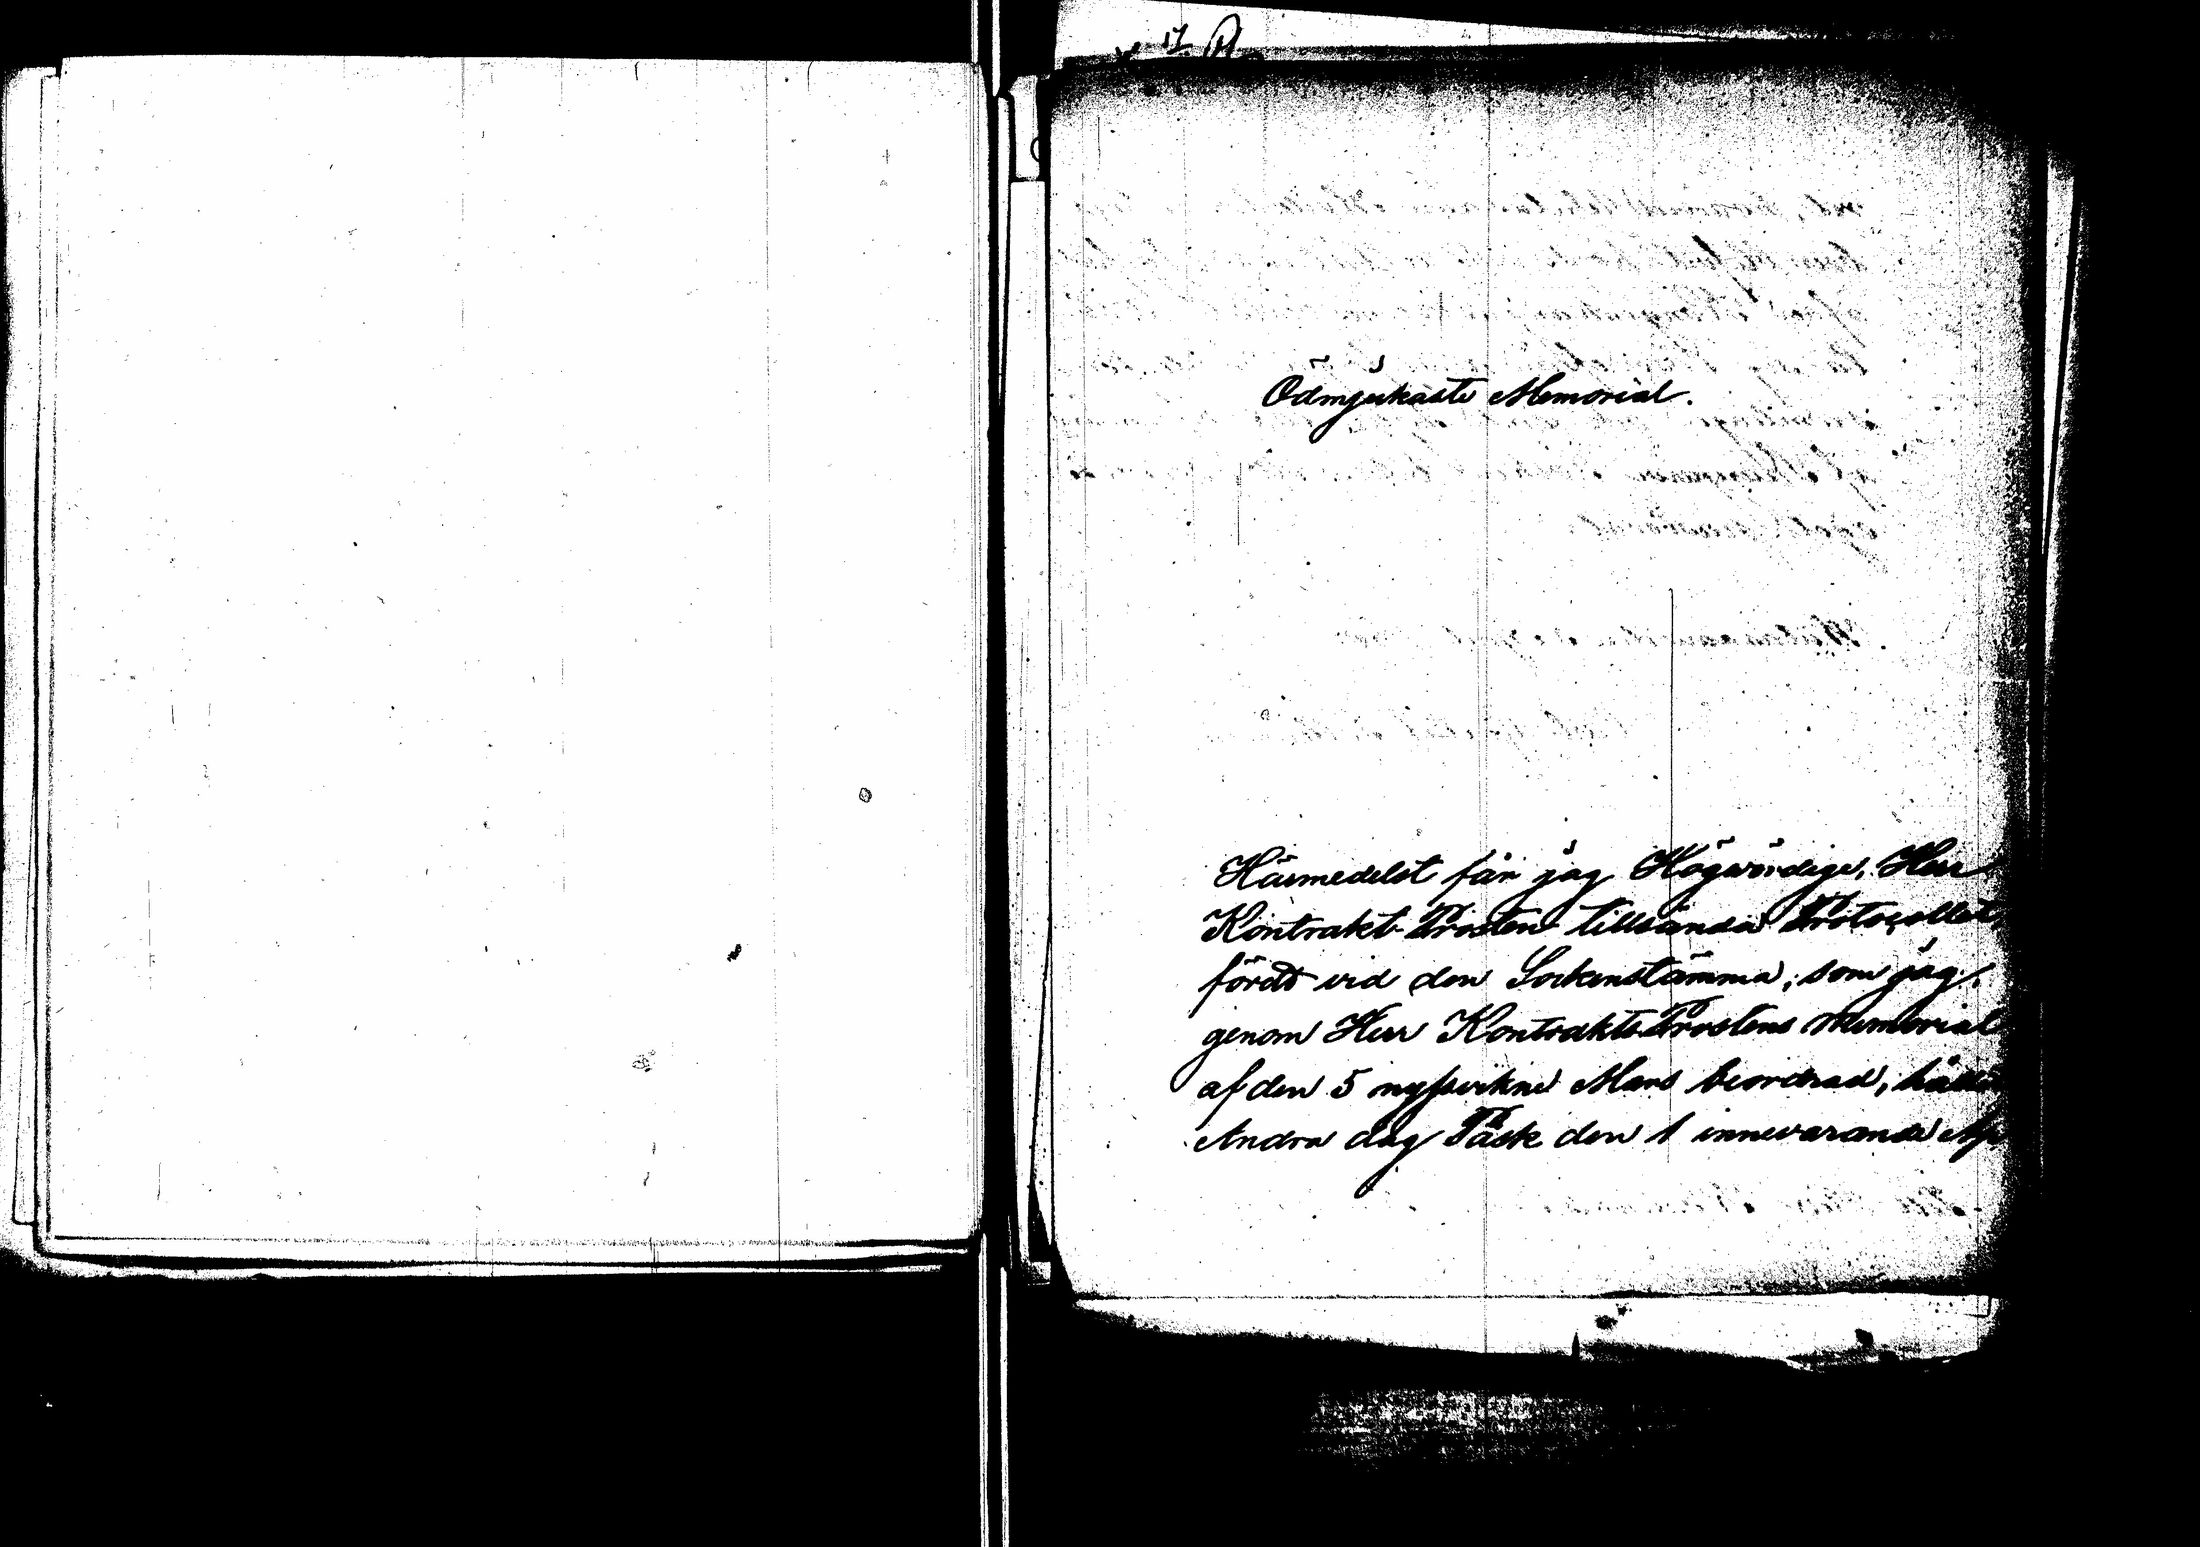 Ödmjukaste Memorial.
Härmedelst får jag Högwördige, Herr
Kontrakt-Prosten tillsända Protocollet,
fördt vid den Sockenstämma, som jag,
genom Herr Kontrakts Prostens Memorial
af den 5 nyssvikne Mars beordrad,
Andra dag Påsk den 1 innevarande